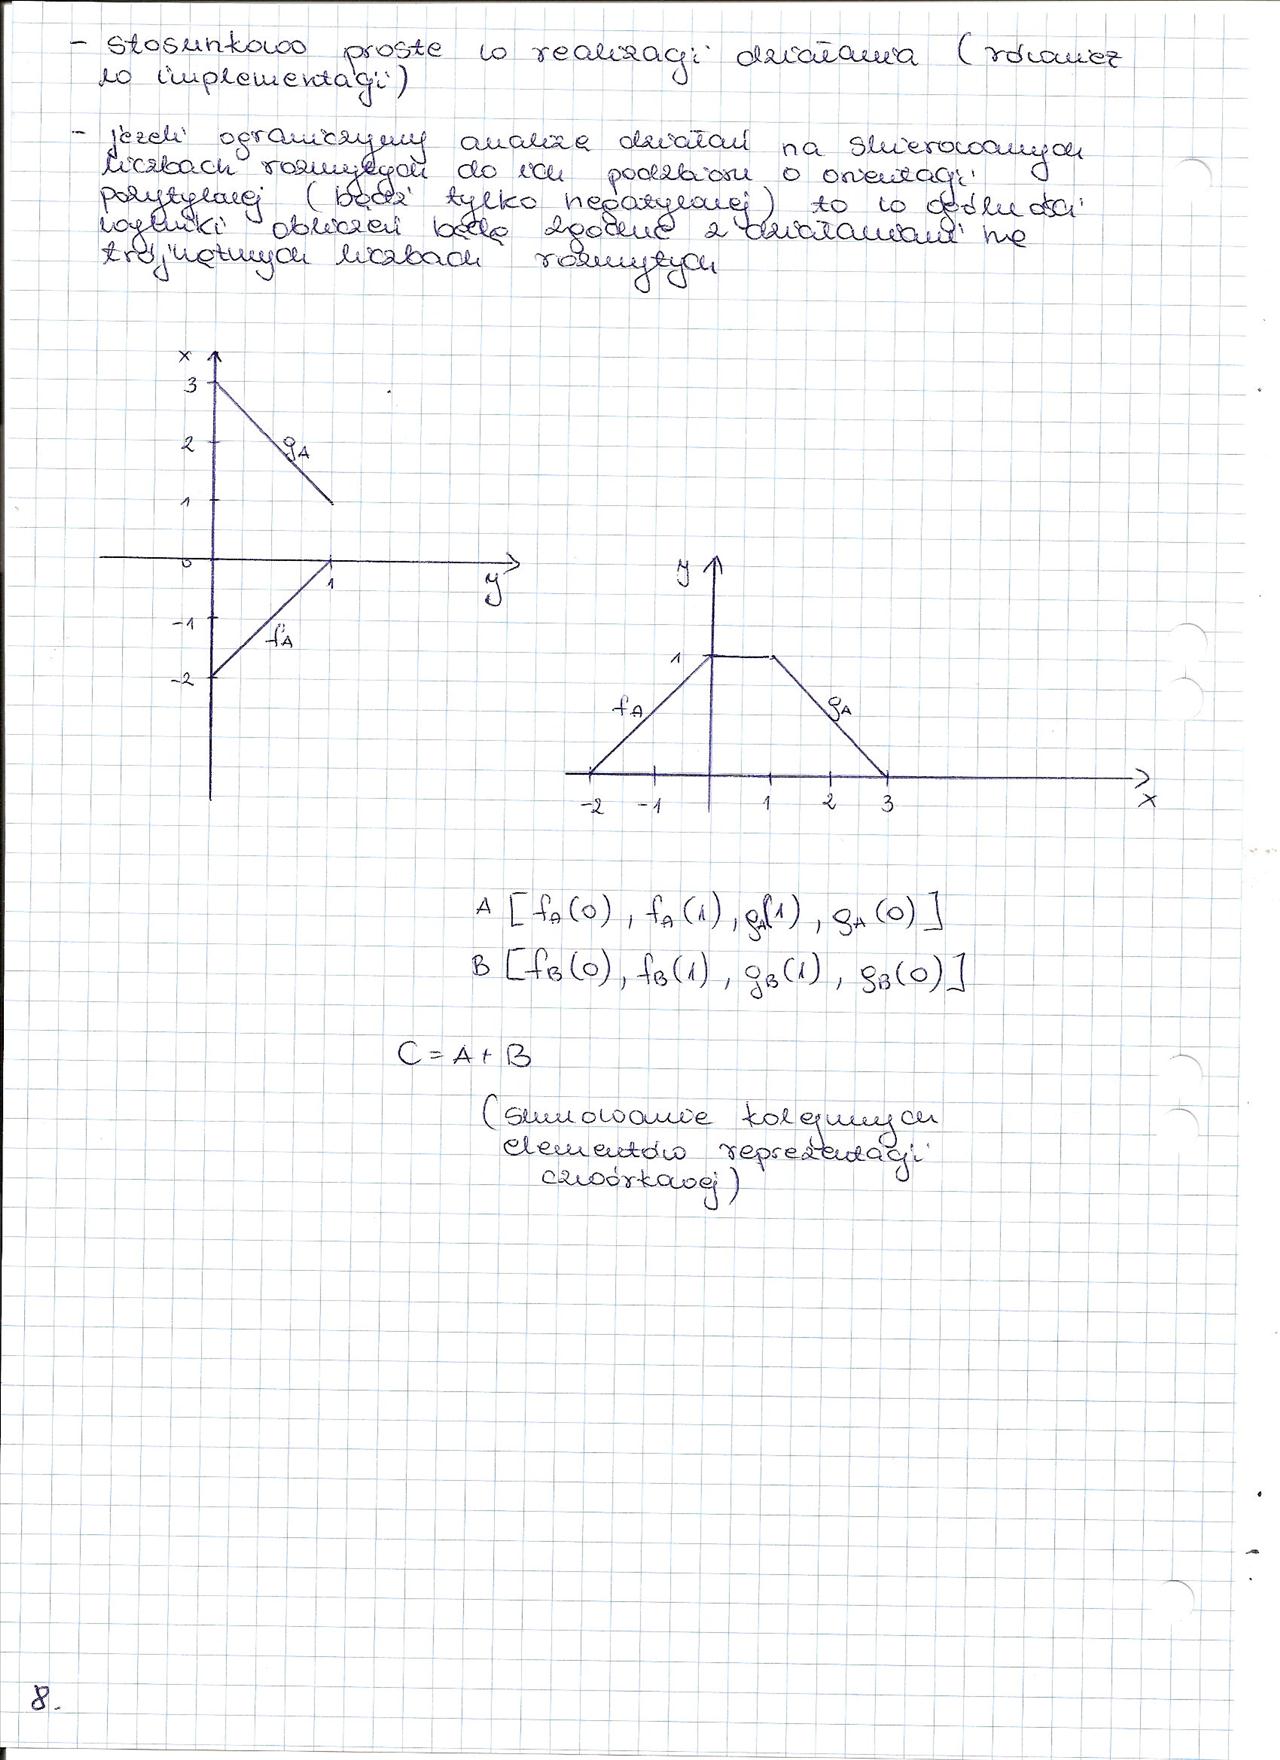 - stosunkowo proste w realizacji działania (również
w implementacji)
- jeżeli ograniczymy analizę działań na skierowanych
liczbach rozmytych do ich podzbioru o orientacji
pozytywnej (bądź tylko negatywnej) to w ogólności
wyniki obliczeń będą zgodne z działaniami na
trójkątnych liczbach rozmytych
x
3
2
gA
1
0
1
y
-1
fA
-2
y
1
fA
gA
-2 -1 1 2 3
x
A [fA(0), fA(1), gA(1), gA(0)]
B [fB(0), fB(1), gB(1), gB(0)]
C = A + B
(sumowanie kolejnych
elementów reprezentacji
czwórkowej)
8.